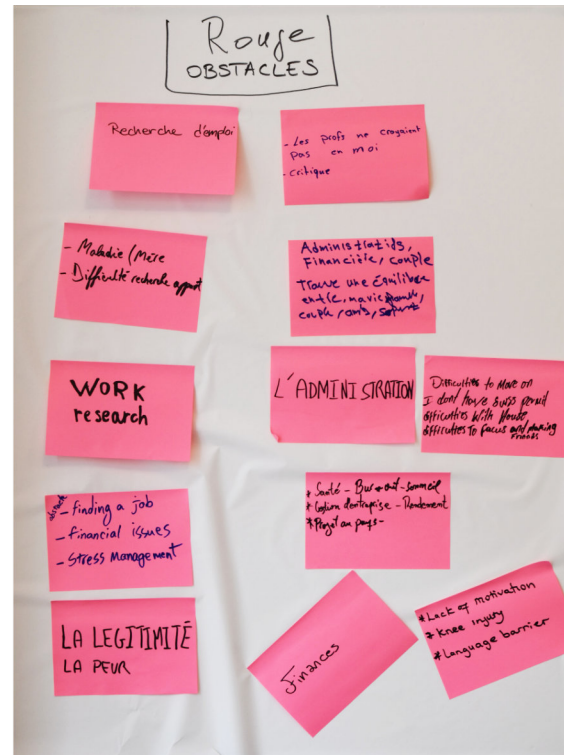 Rouge
OBSTACLES
Recherche d'emploi
- Les profs ne croyaient
pas en moi
- critique
- Maladie (Mère
- Difficulté recherche appart
Administratifs,
Financière, couple
Trouve une équilibre
entre, ma vie
couple, amis,
WORK
research
L'ADMINISTRATION
Difficulties to Move on
I dont have swiss permit
difficulties With House
difficulties To focus and Making
Friends
- finding a job
- financial issues
- Stress Management
* Santé - Burn out - sommeil
* Gestion d'entreprise - Rendement
* Projet au pays -
LA LEGITIMITÉ
LA PEUR
Finances
* Lack of motivation
* Knee injury
* Language barrier